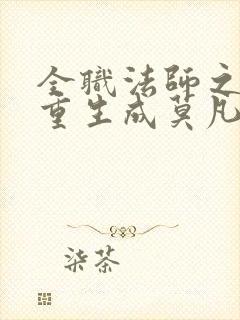 全职法师之
重生成莫凡
柒茶